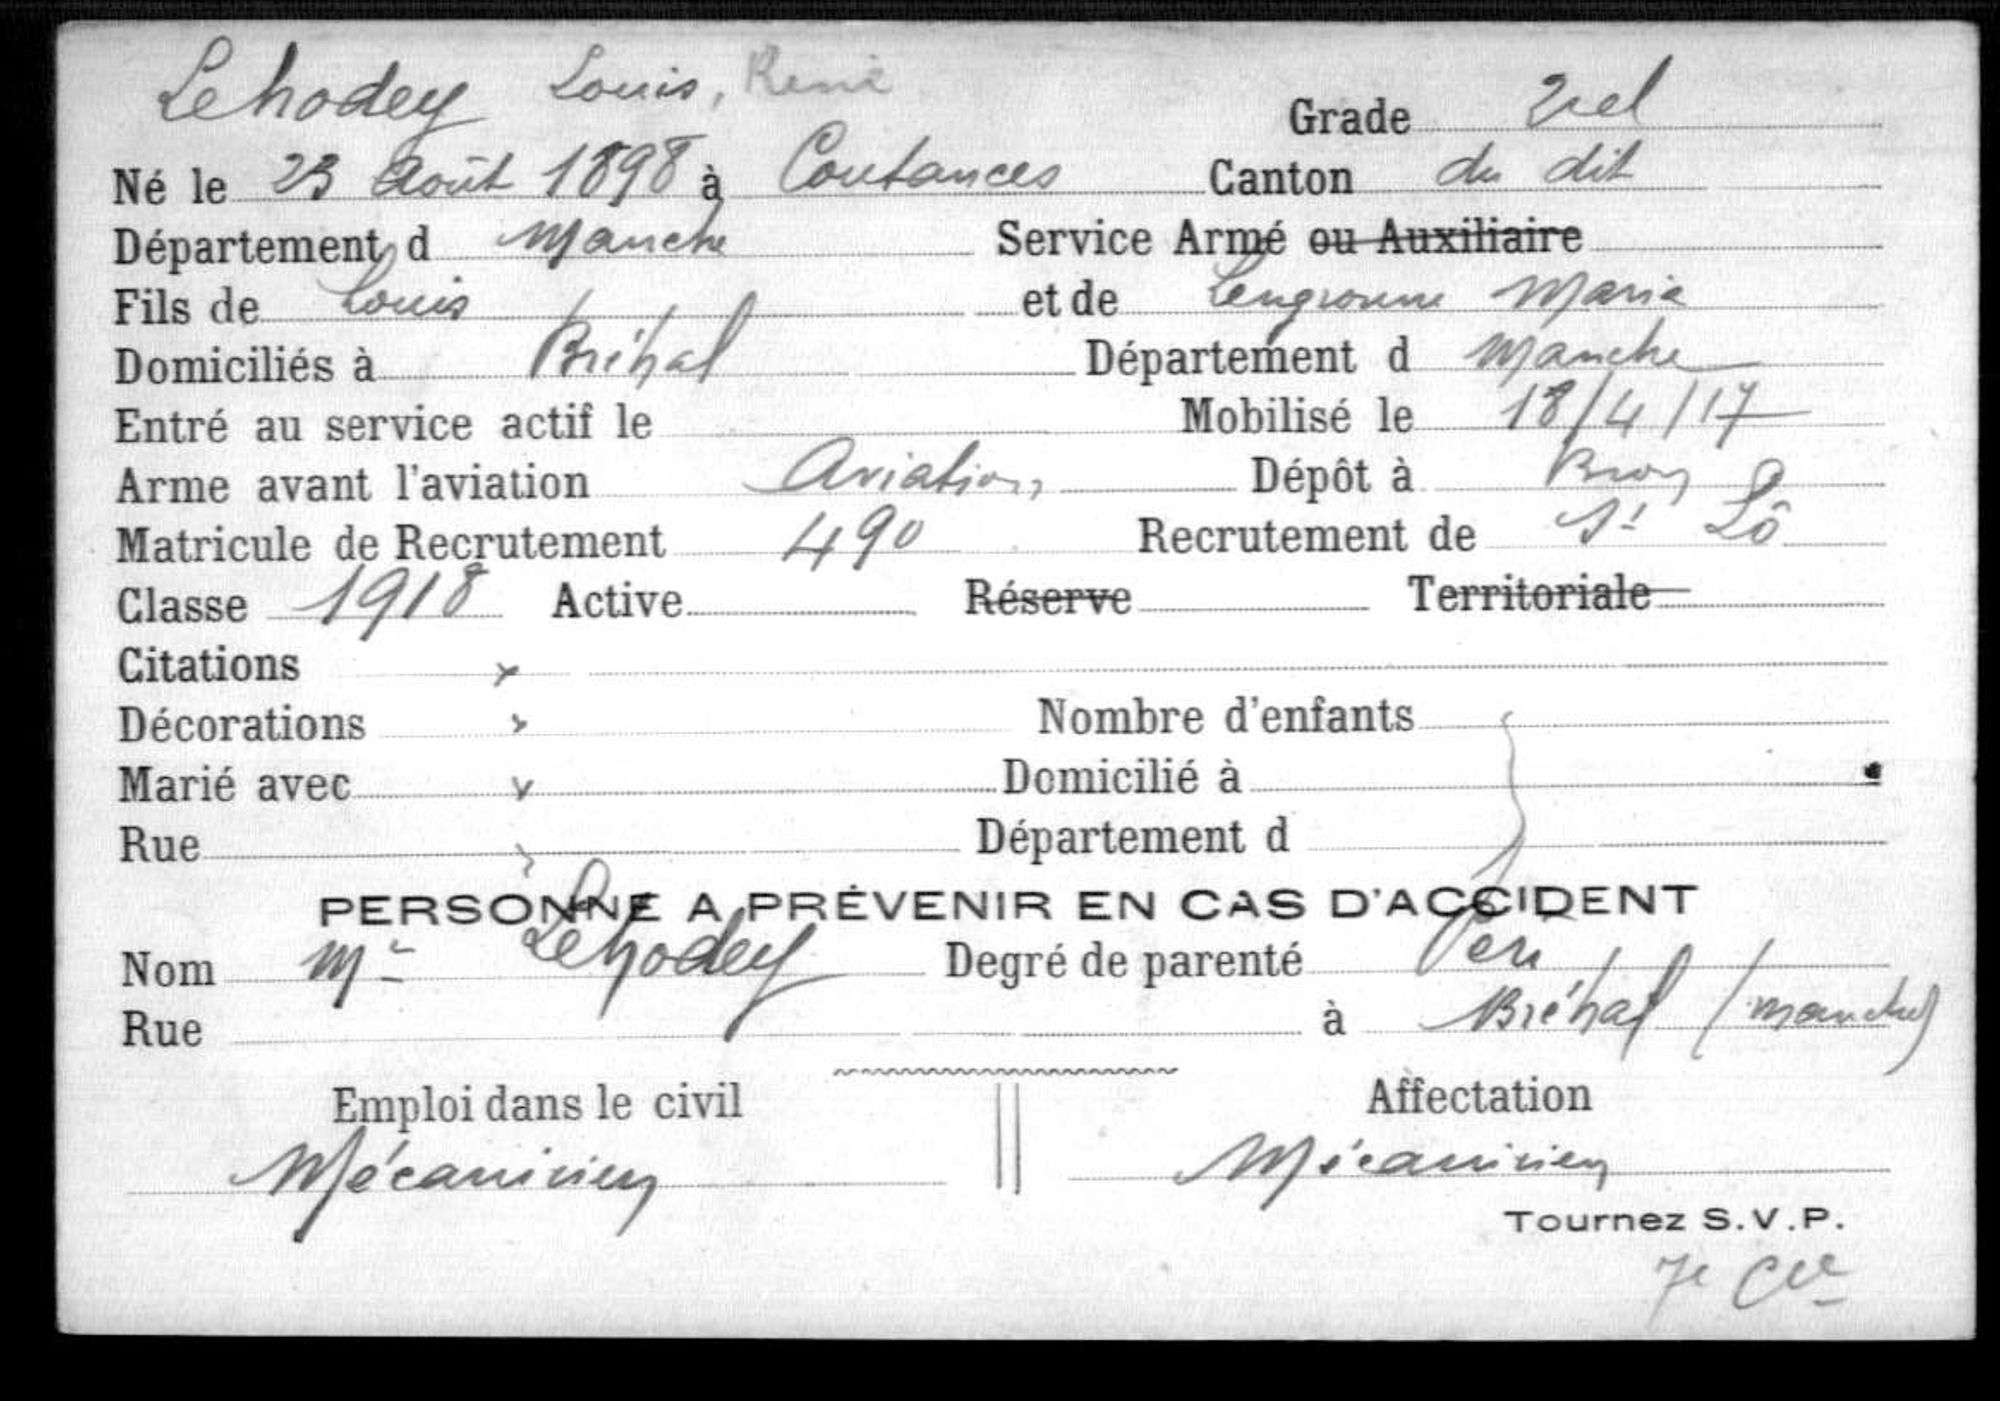 Lehodey Louis, René
Grade 2èl
Né le 23 Août 1898 à Coutances Canton du dit
Département d Manche Service Armé ou Auxiliaire
Fils de Louis et de Lengronne Maria
Domiciliés à Bréhal Département d Manche
Entré au service actif le Mobilisé le 18/4/17
Arme avant l'aviation Aviation Dépôt à Bron
Matricule de Recrutement 490 Recrutement de St Lô
Classe 1918 Active Réserve Territoriale
Citations x
Décorations x Nombre d'enfants
Marié avec x Domicilié à
Rue Département d
PERSONNE A PRÉVENIR EN CAS D'ACCIDENT
Nom Mr Lehodey Degré de parenté Père
Rue à Bréhal (Manche)
Emploi dans le civil Affectation
Mécanicien Mécanicien
Tournez S.V.P.
7e Cie